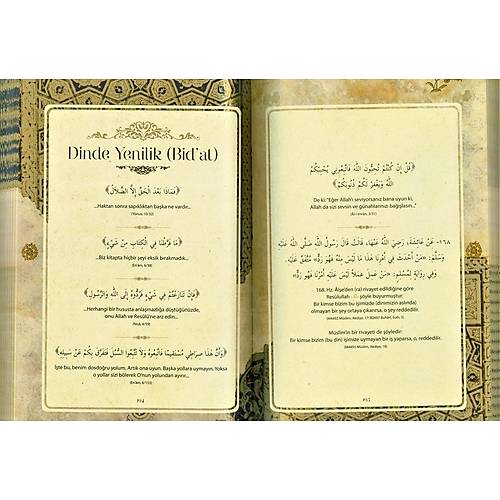 Dinde Yenilik (Bid'at)
﴿فَمَاذَا بَعْدَ الْحَقِّ إِلَّا الضَّلَالُ﴾
...Haktan sonra sapıklıktan başka ne vardır...
(Yûnus, 10/32)
﴿مَا فَرَّطْنَا فِي الْكِتَابِ مِنْ شَيْءٍ﴾
...Biz kitapta hiçbir şeyi eksik bırakmadık...
(En'âm, 6/38)
﴿فَإِنْ تَنَازَعْتُمْ فِي شَيْءٍ فَرُدُّوهُ إِلَى اللهِ وَالرَّسُولِ﴾
...Herhangi bir hususta anlaşmazlığa düştüğünüzde,
onu Allah ve Resûlü'ne arz edin...
(Nisâ, 4/59)
﴿وَأَنَّ هَذَا صِرَاطِي مُسْتَقِيمًا فَاتَّبِعُوهُ وَلَا تَتَّبِعُوا السُّبُلَ فَتَفَرَّقَ بِكُمْ عَنْ سَبِيلِهِ﴾
İşte bu, benim dosdoğru yolum. Artık ona uyun. Başka yollara uymayın. Yoksa
o yollar sizi bölerek O'nun yolundan ayırır...
(En'âm, 6/153)
﴿قُلْ إِنْ كُنْتُمْ تُحِبُّونَ اللهَ فَاتَّبِعُونِي يُحْبِبْكُمُ
اللهُ وَيَغْفِرْ لَكُمْ ذُنُوبَكُمْ﴾
De ki: "Eğer Allah'ı seviyorsanız bana uyun ki,
Allah da sizi sevsin ve günahlarınızı bağışlasın..."
(Âl-i İmrân, 3/31)
١٦٨- عَنْ عَائِشَةَ، رَضِيَ اللهُ عَنْهَا، قَالَتْ قَالَ رَسُولُ اللهِ صَلَّى اللهُ عَلَيْهِ
وَسَلَّمَ: «مَنْ أَحْدَثَ فِي أَمْرِنَا هَذَا مَا لَيْسَ مِنْهُ فَهُوَ رَدٌّ» مُتَّفَقٌ عَلَيْهِ.
وَفِي رِوَايَةٍ لِمُسْلِمٍ: «مَنْ عَمِلَ عَمَلًا لَيْسَ عَلَيْهِ أَمْرُنَا فَهُوَ رَدٌّ»
168. Hz. Âişe'den (ra) rivayet edildiğine göre
Resûlullah şöyle buyurmuştur:
Bir kimse bizim bu işimizde (dinimizin aslında)
olmayan bir şey ortaya çıkarırsa, o şey reddedilir.
Müslim'in bir rivayeti de şöyledir:
Bir kimse bizim (bu dini) işimize uymayan bir iş yaparsa, o, reddedilir.